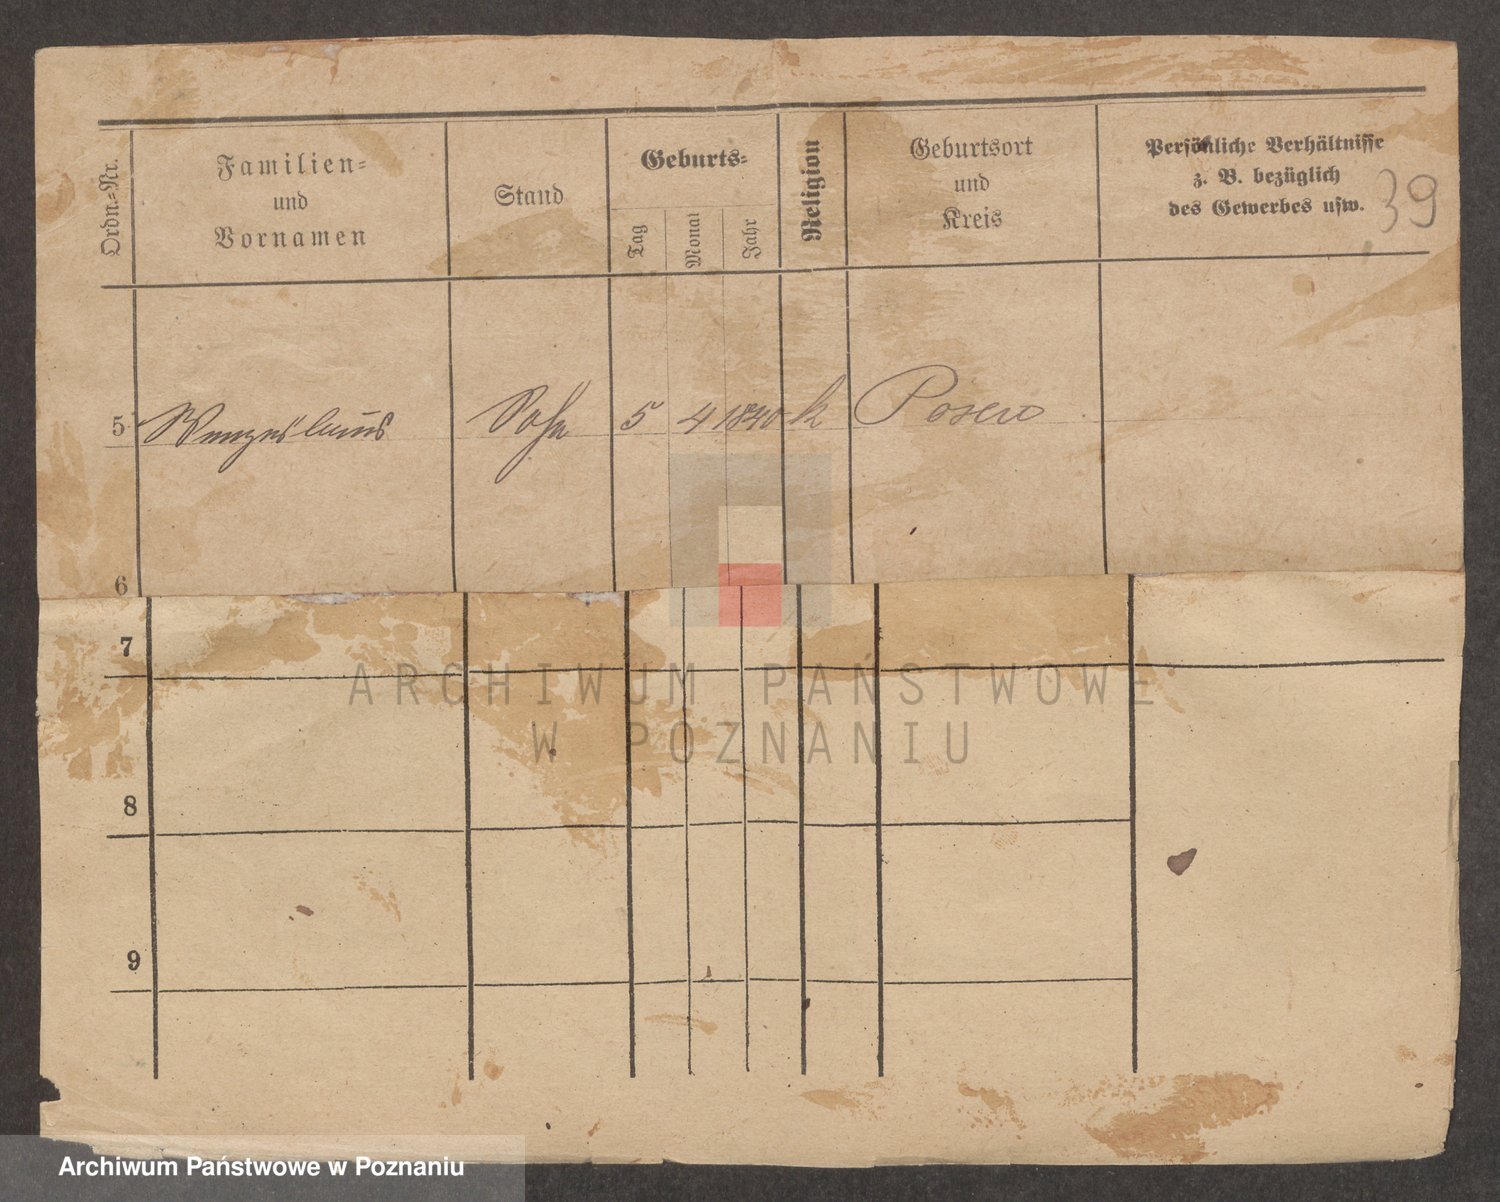 Ordn.-Nr.
Familien-
und
Vornamen
Stand
Geburts-
Tag
Monat
Jahr
Religion
Geburtsort
und
Kreis
Persönliche Verhältnisse
z. B. bezüglich
des Gewerbes usw.
39
5 Wenzeslaus Sohn 5 4 1840 k Posen
6
7
ARCHIWUM PAŃSTWOWE
W POZNANIU
8
9
Archiwum Państwowe w Poznaniu